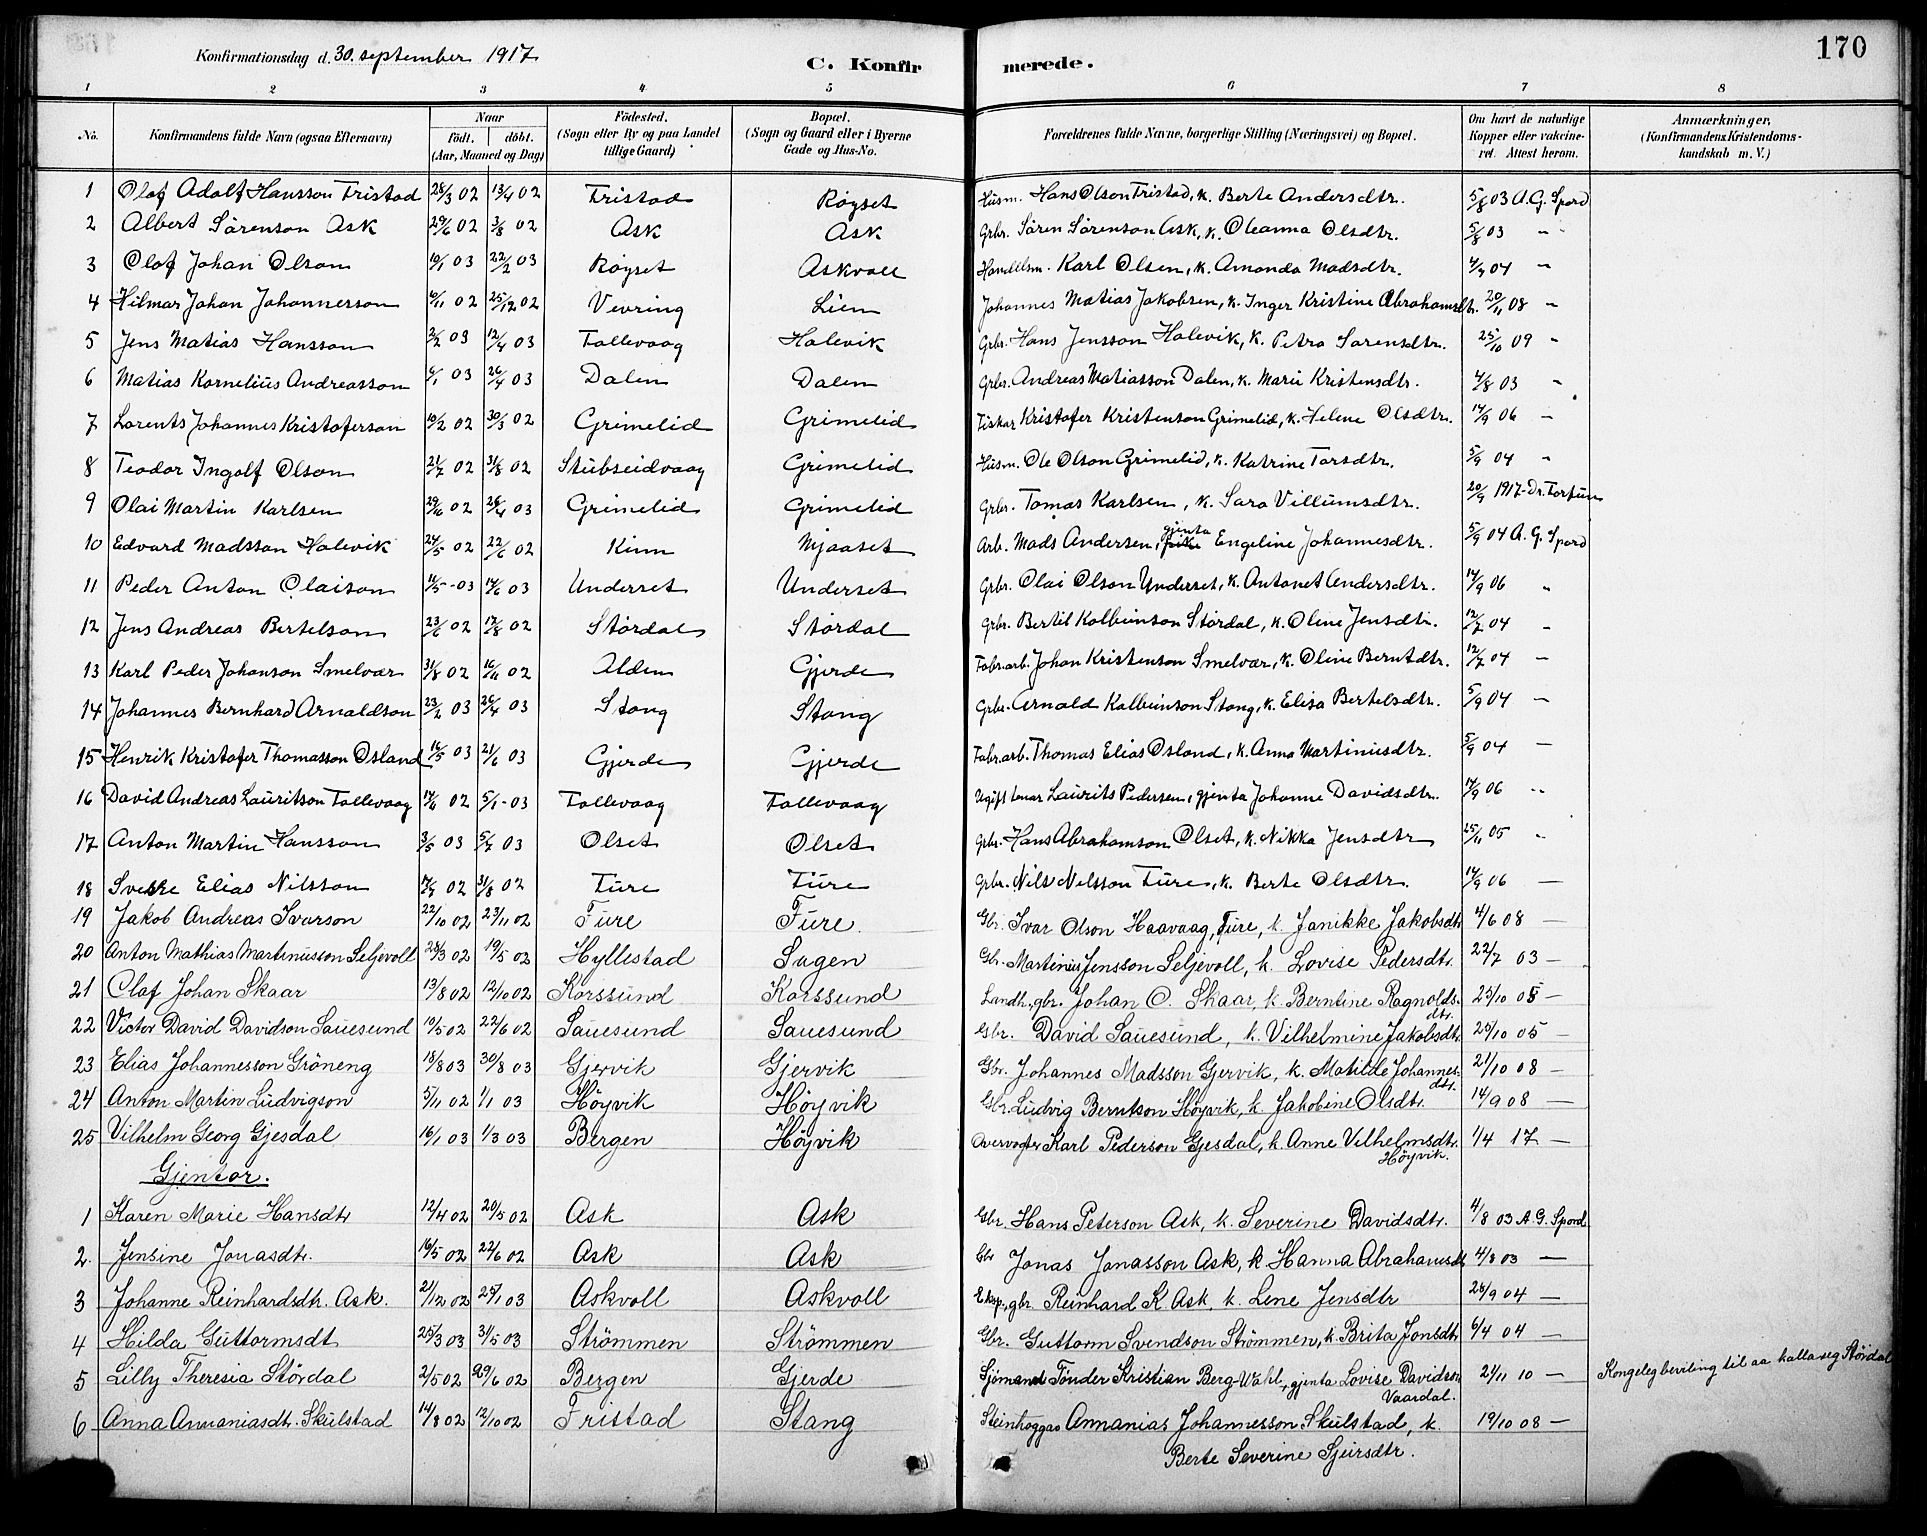 170
Konfirmationsdag d. 30. september 1917
C. Konfirmerede.
1 2 3 4 5 6 7 8
No. | Konfirmandens fulde Navn (ogsaa Efternavn) | Naar født. døbt. (Aar, Maaned og Dag) | Fødested. (Sogn eller By og paa Landet tillige Gaard) | Bopæl. (Sogn og Gaard eller i Byerne Gade og Hus-No. | Forældrenes fulde Navne, borgerlige Stilling (Næringsvei) og Bopæl. | Om havt de naturlige Kopper eller vakcineret. Attest herom. | Anmærkninger, (Konfirmandens Kristendomskundskab m. V.)
1 Olaf Adolf Hansson Fristad 28/3 02 13/4 02 Fristad Røyset Husm. Hans Olson Fristad, k. Berte Andersdtr. 5/8 03 A. G. Spord
2 Albert Sørenson Ask 29/6 02 3/8 02 Ask Ask Grbr. Søren Sørenson Ask, k. Oleanna Olsdtr. 5/8 03 "
3 Olaf Johan Olson 10/1 03 22/2 03 Røyset Askvoll Handelsm. Karl Olsen, k. Amanda Madsdtr. 4/9 04 "
4 Hilmar Johan Johannesson 6/11 02 25/12 02 Vevring Lien Johannes Matias Jakobsen, k. Inger Kristine Abrahamsdtr. 20/11 08 "
5 Jens Matias Hansson 2/2 03 12/4 03 Follevaag Holevik Grbr. Hans Jensson Holevik, k. Petra Sørensdtr. 25/10 09 "
6 Matias Kornelius Andreasson 6/1 03 26/4 03 Dalen Dalen Grbr. Andreas Matiasson Dalen, k. Marie Kristensdtr. 4/8 03 "
7 Lorents Johannes Kristoferson 10/2 02 30/3 02 Grimelid Grimelid Fiskar Kristofer Kristenson Grimelid, k. Helene Olsdtr. 14/9 06 "
8 Teodor Ingolf Olson 21/7 02 31/8 02 Stubseidvaag Grimelid Husm. Ole Olson Grimelid, k. Katrine Torsdtr. 5/9 04 "
9 Olai Martin Karlsen 29/6 02 26/4 03 Grimelid Grimelid Grbr. Tomas Karlsen, k. Sara Villumsdtr. 20/9 1917 - Dr. Fortun
10 Edvard Madsson Holevik 24/5 02 22/6 02 Kinn Mjaaset Arb. Mads Andersen, gjenta Engeline Johannesdtr. 5/9 04 A. G. Spord
11 Peder Anton Olaison 11/5 03 14/6 03 Underset Underset Grbr. Olai Olson Underset, k. Antonet Andersdtr. 14/9 06 "
12 Jens Andreas Bertelson 23/6 02 17/8 02 Størdal Størdal Grbr. Bertil Kolbeinson Størdal, k. Oline Jensdtr. 12/7 04 "
13 Karl Peder Johanson Smelvær 31/8 02 16/11 02 Alden Gjerde Fabr.arb. Johan Kristenson Smelvær, k. Oline Berntdtr. 12/7 04 "
14 Johannes Bernhard Arnaldson 23/2 03 26/4 03 Stong Stong Grbr. Arnold Kolbeinson Stong, k. Elisa Bertelsdtr. 5/9 04 —
15 Henrik Kristofer Thomasson Osland 16/5 03 21/6 03 Gjerde Gjerde Fabr.arb. Thomas Elias Osland, k. Anna Martinusdtr. 5/9 04 —
16 David Andreas Lauritson Follevaag 02 5/1 03 Follevaag Follevaag Ugift Laurits Pedersen, gjenta Johanne Davidsdtr. 14/9 06 "
17 Anton Martin Hansson 3/5 03 5/7 03 Olset Olset Grbr. Hans Abrahamson Olset, k. Nikka Jensdtr 25/11 05 "
18 Sverre Elias Nilsson 02 31/8 02 Fure Fure Grbr. Nils Nilsson Fure, k. Berte Olsdtr. 14/9 06 —
19 Jakob Andreas Ivarson 22/10 02 23/11 02 Fure Fure. Gbr. Ivar Olson Haavaag, Fure, k. Janikke Jakobsdtr 4/6 08 —
20 Anton Mathias Martinusson Seljevoll 28/3 02 19/5 02 Hyllestad Sagen Gbr. Martinus Jensson Seljevoll, k. Lovise Pedersdtr. 22/7 03 —
21 Olaf Johan Skaar 13/8 02 12/10 02 Korssund Korssund Landh., gbr. Johan O. Skaar, k. Berntine Ragnoldsdtr. 25/10 05 —
22 Victor David Davidson Sauesund 10/5 02 22/6 02 Sauesund Sauesund Gbr. David Sauesund, k. Vilhelmine Jakobsdtr. 25/10 05 —
23 Elias Johannesson Gröneng 18/8 03 30/8 03 Gjervik Gjervik Gbr. Johannes Madsson Gjervik, k. Matilde Johannesdtr. 21/10 08 —
24 Anton Martin Ludvigson 5/11 02 1/1 03 Höyvik Höyvik Gbr. Ludvig Berntson Höyvik, k. Jakobine Olsdtr. 14/9 08 —
25 Vilhelm Georg Gjesdal 16/1 03 1/3 03 Bergen Höyvik Overvogter Karl Pederson Gjesdal, k. Anne Vilhelmsdtr. Höyvik. 1/4 17 —
Gjentor.
1 Karen Marie Hansdtr 12/4 02 20/5 02 Ask Ask Gbr. Hans Peterson Ask, k. Severine Davidsdtr. 4/8 03 A. G. Spord.
2. Jensine Jonasdtr. 16/5 02 22/6 02 Ask Ask Gbr Jonas Jonasson Ask, k Hanna Abrahamsdtr 4/8 03 —
3 Johanne Reinhardsdtr. Ask. 21/12 02 25/1 03 Askvoll Askvoll Eksp., gbr. Reinhard K Ask, k. Lene Jensdtr 28/9 04 —
4 Hilda Guttormsdt 25/3 03 31/5 03 Strömmen Strömmen Gbr. Guttorm Svendson Strömmen, k. Brita Jonsdtr 6/4 04 —
5 Lilly Theresia Stördal 2/5 02 29/6 02 Bergen Gjerde Sjömand Tönder Kristian Berg-Wahl, gjenta Lovise Davidson Vaardal. 21/11 10 — Kongeleg berviling til aa kalla seg Stördal
6 Anna Annaniasdtr. Skulstad 14/8 02 12/10 02 Fristad Stang Steinhoggar Annanias Johannesson Skulstad, k. Berte Severine Sjeirsdtr. 19/10 08 —